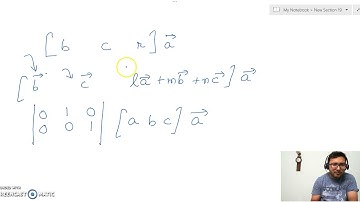 My Notebook > New Section 19
[ b c r ] a⃗
[ b⃗ c⃗ la⃗ + mb⃗ + nc⃗ ] a⃗
| 0 1 0 |
| 0 0 1 | [ a b c ] a⃗
RECORDED WITH
SCREENCAST-O-MATIC